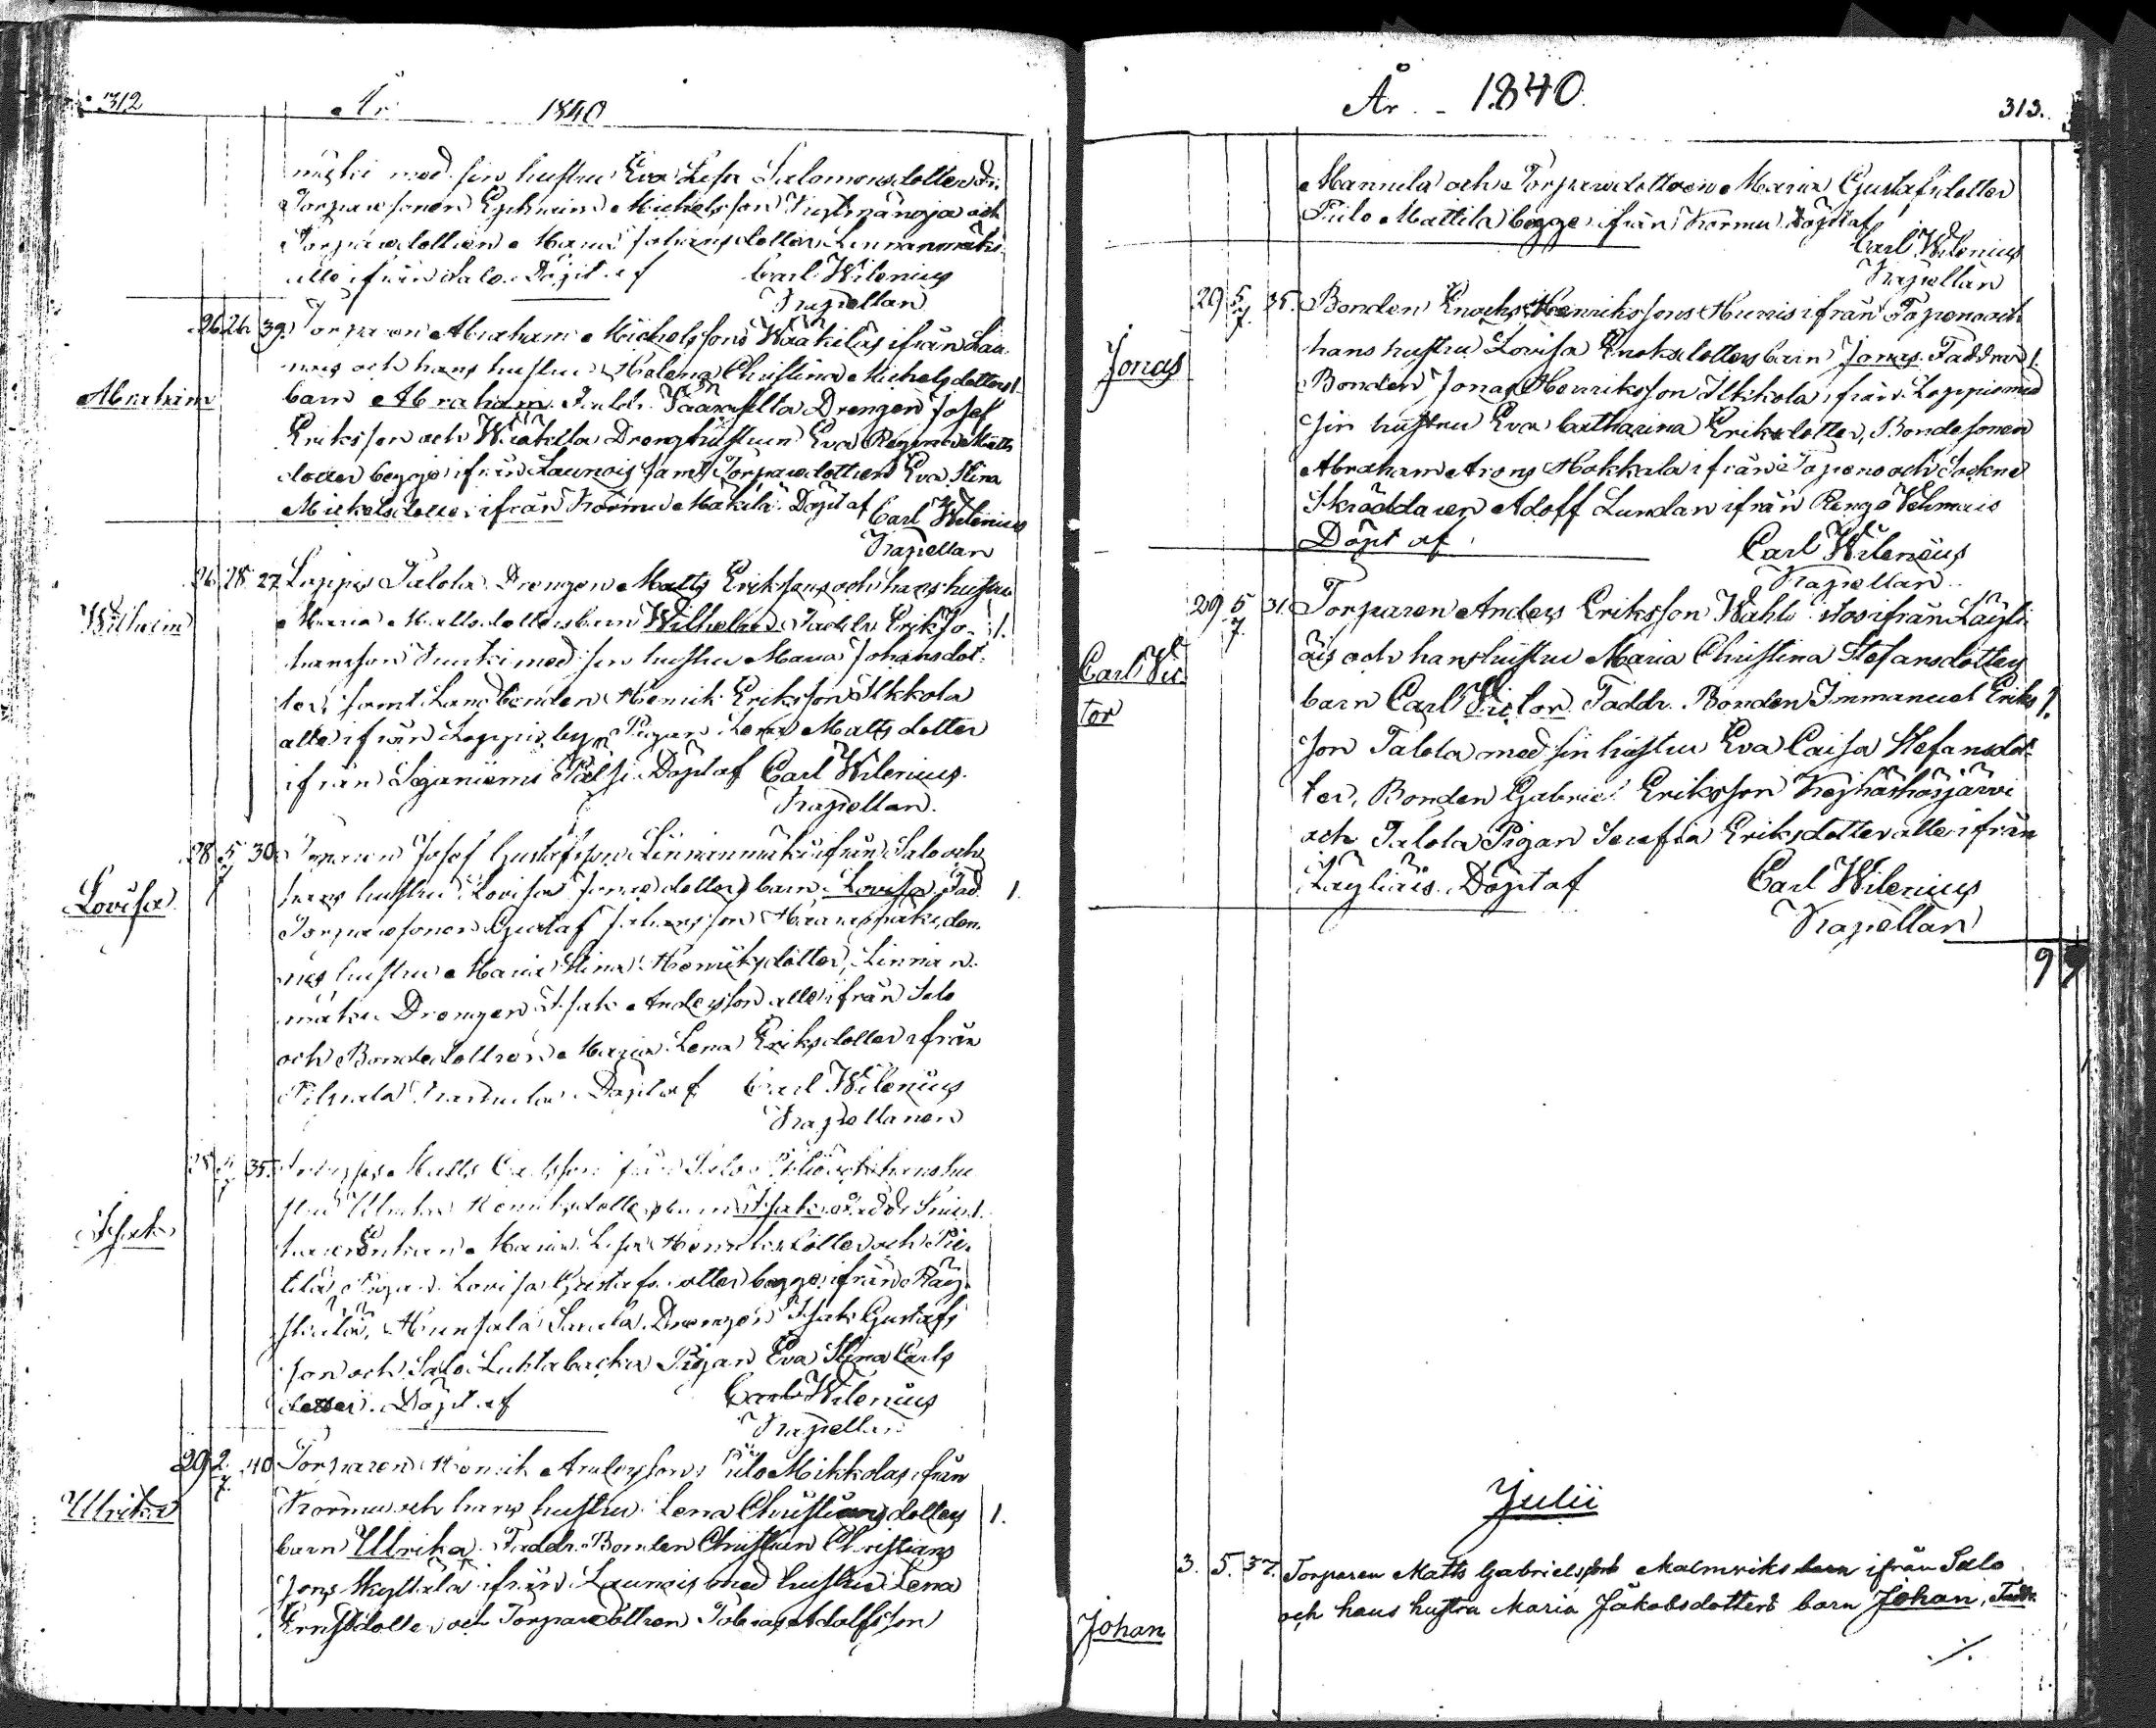 312
År 1840
mäki med sin hustru Eva Lisa Salomonsdotter
Torparesonen Ephraim Michelsson och
Torparedottren Maria Johansdotter Linnanmäki
alle ifrån Salo. Döpt af Carl Wilenius
Kapellan
26 26 39. Torparen Abraham Michelssons Wääkiläs ifrån Lau-
nais och hans hustru Helena Christina Michelsdotters 1.
Abraham
barn Abraham. Faddr. Drengen Josef
Eriksson och Wääkilä Drenghustrun Eva Regina Matts
dotter begge ifrån Launais samt Torparedottren Eva Stina
Mickelsdotter ifrån Kormu Mäkilä. Döpt af Carl Wilenius
Kapellan
26 28 27 Loppis Talola Drengen Matts Erikssons och hans hustru
Wilhelm
Maria Mattsdotters barn Wilhelm. Faddr. Erik Jo- 1.
hansson med sin hustru Maria Johansdot-
ter, samt Landbonden Henrik Eriksson Ilkkola
alle ifrån Loppis by, Pigan Lena Mattsdotter
ifrån Sajaniemi Pälsi. Döpt af Carl Wilenius
Kapellan.
28 5/7 30. Torparen Josef Gustafsson Linnanmäki ifrån Salo och
Lovisa
hans hustru Lovisa Jonaedotters barn Lovisa. Fad. 1.
Torparesonen Gustaf Johansson den-
nes hustru Maria Stina Henriksdotter, Linnan-
mäki Drengen Isak Andersson alle ifrån Salo
och Bondedottren Maria Lena Eriksdotter ifrån
Pilpala Döpt af Carl Wilenius
Kapellanen
35. Matts Carlsson från Salo och hans hu-
Isak
stru Ulrika Henriksdotters barn Isak. Faddr. 1.
Enkan Maria Lisa Henriksdotter och Pie-
tilä Pigan Lovisa Gustafsdotter begge ifrån Räy-
skälä, Hunsala Drengen Isak Gustafs
son och Salo Luhtabacka Pigan Eva Stina Carls
dotter. Döpt af Carl Wilenius
Kapellan
29 2/7 40 Torparen Henrik Anderssons Piilo Mikkolas ifrån
Ulrika
Kormu och hans hustru Lena Christiansdotters 1.
barn Ulrika. Faddr. Bonden Christian Christians
sons Skyttälä ifrån Launais med hustru Lena
Ernstdotter och Torparedottren Tobias Adolfsson
År 1840.
313.
Mannila och Torparedottren Maria Gustafsdotter
Piilo Mattila begge ifrån Kormu. Döpt af
Carl Wilenius
Kapellan
29 5/7 35. Bonden Enochs Henrikssons Hunnis ifrån Topeno och
Jonas
hans hustru Lovisa Enoksdotters barn Jonas. Faddrar 1.
Bonden Jonas Henriksson Ilkkola ifrån Loppis med
sin hustru Eva Catharina Eriksdotter, Bondesonen
Abraham Arons Hokkala ifrån Topeno och Sockne
Skräddaren Adolf Lundan ifrån Rengo Vehmais
Döpt af Carl Wilenius
Kapellan
29 5/7 31. Torparen Anders Eriksson Wahlstos ifrån Läyli-
äis och hans hustru Maria Christina Stefansdotters
Carl Vic
tor
barn Carl Victor. Faddr. Bonden Immanuel Eriks 1.
son Talola med sin hustru Eva Caisa Stefansdot-
ter, Bonden Gabriel Eriksson Keihäsjärvi
och Talola Pigan Serafia Eriksdotter alle ifrån
Läyliäis. Döpt af Carl Wilenius
Kapellan
9
Julii
3. 5. 37. Torparen Matts Gabrielssons Malmriks barn ifrån Salo
och hans hustru Maria Jakobsdotters barn Johan, Faddr.
Johan
./.